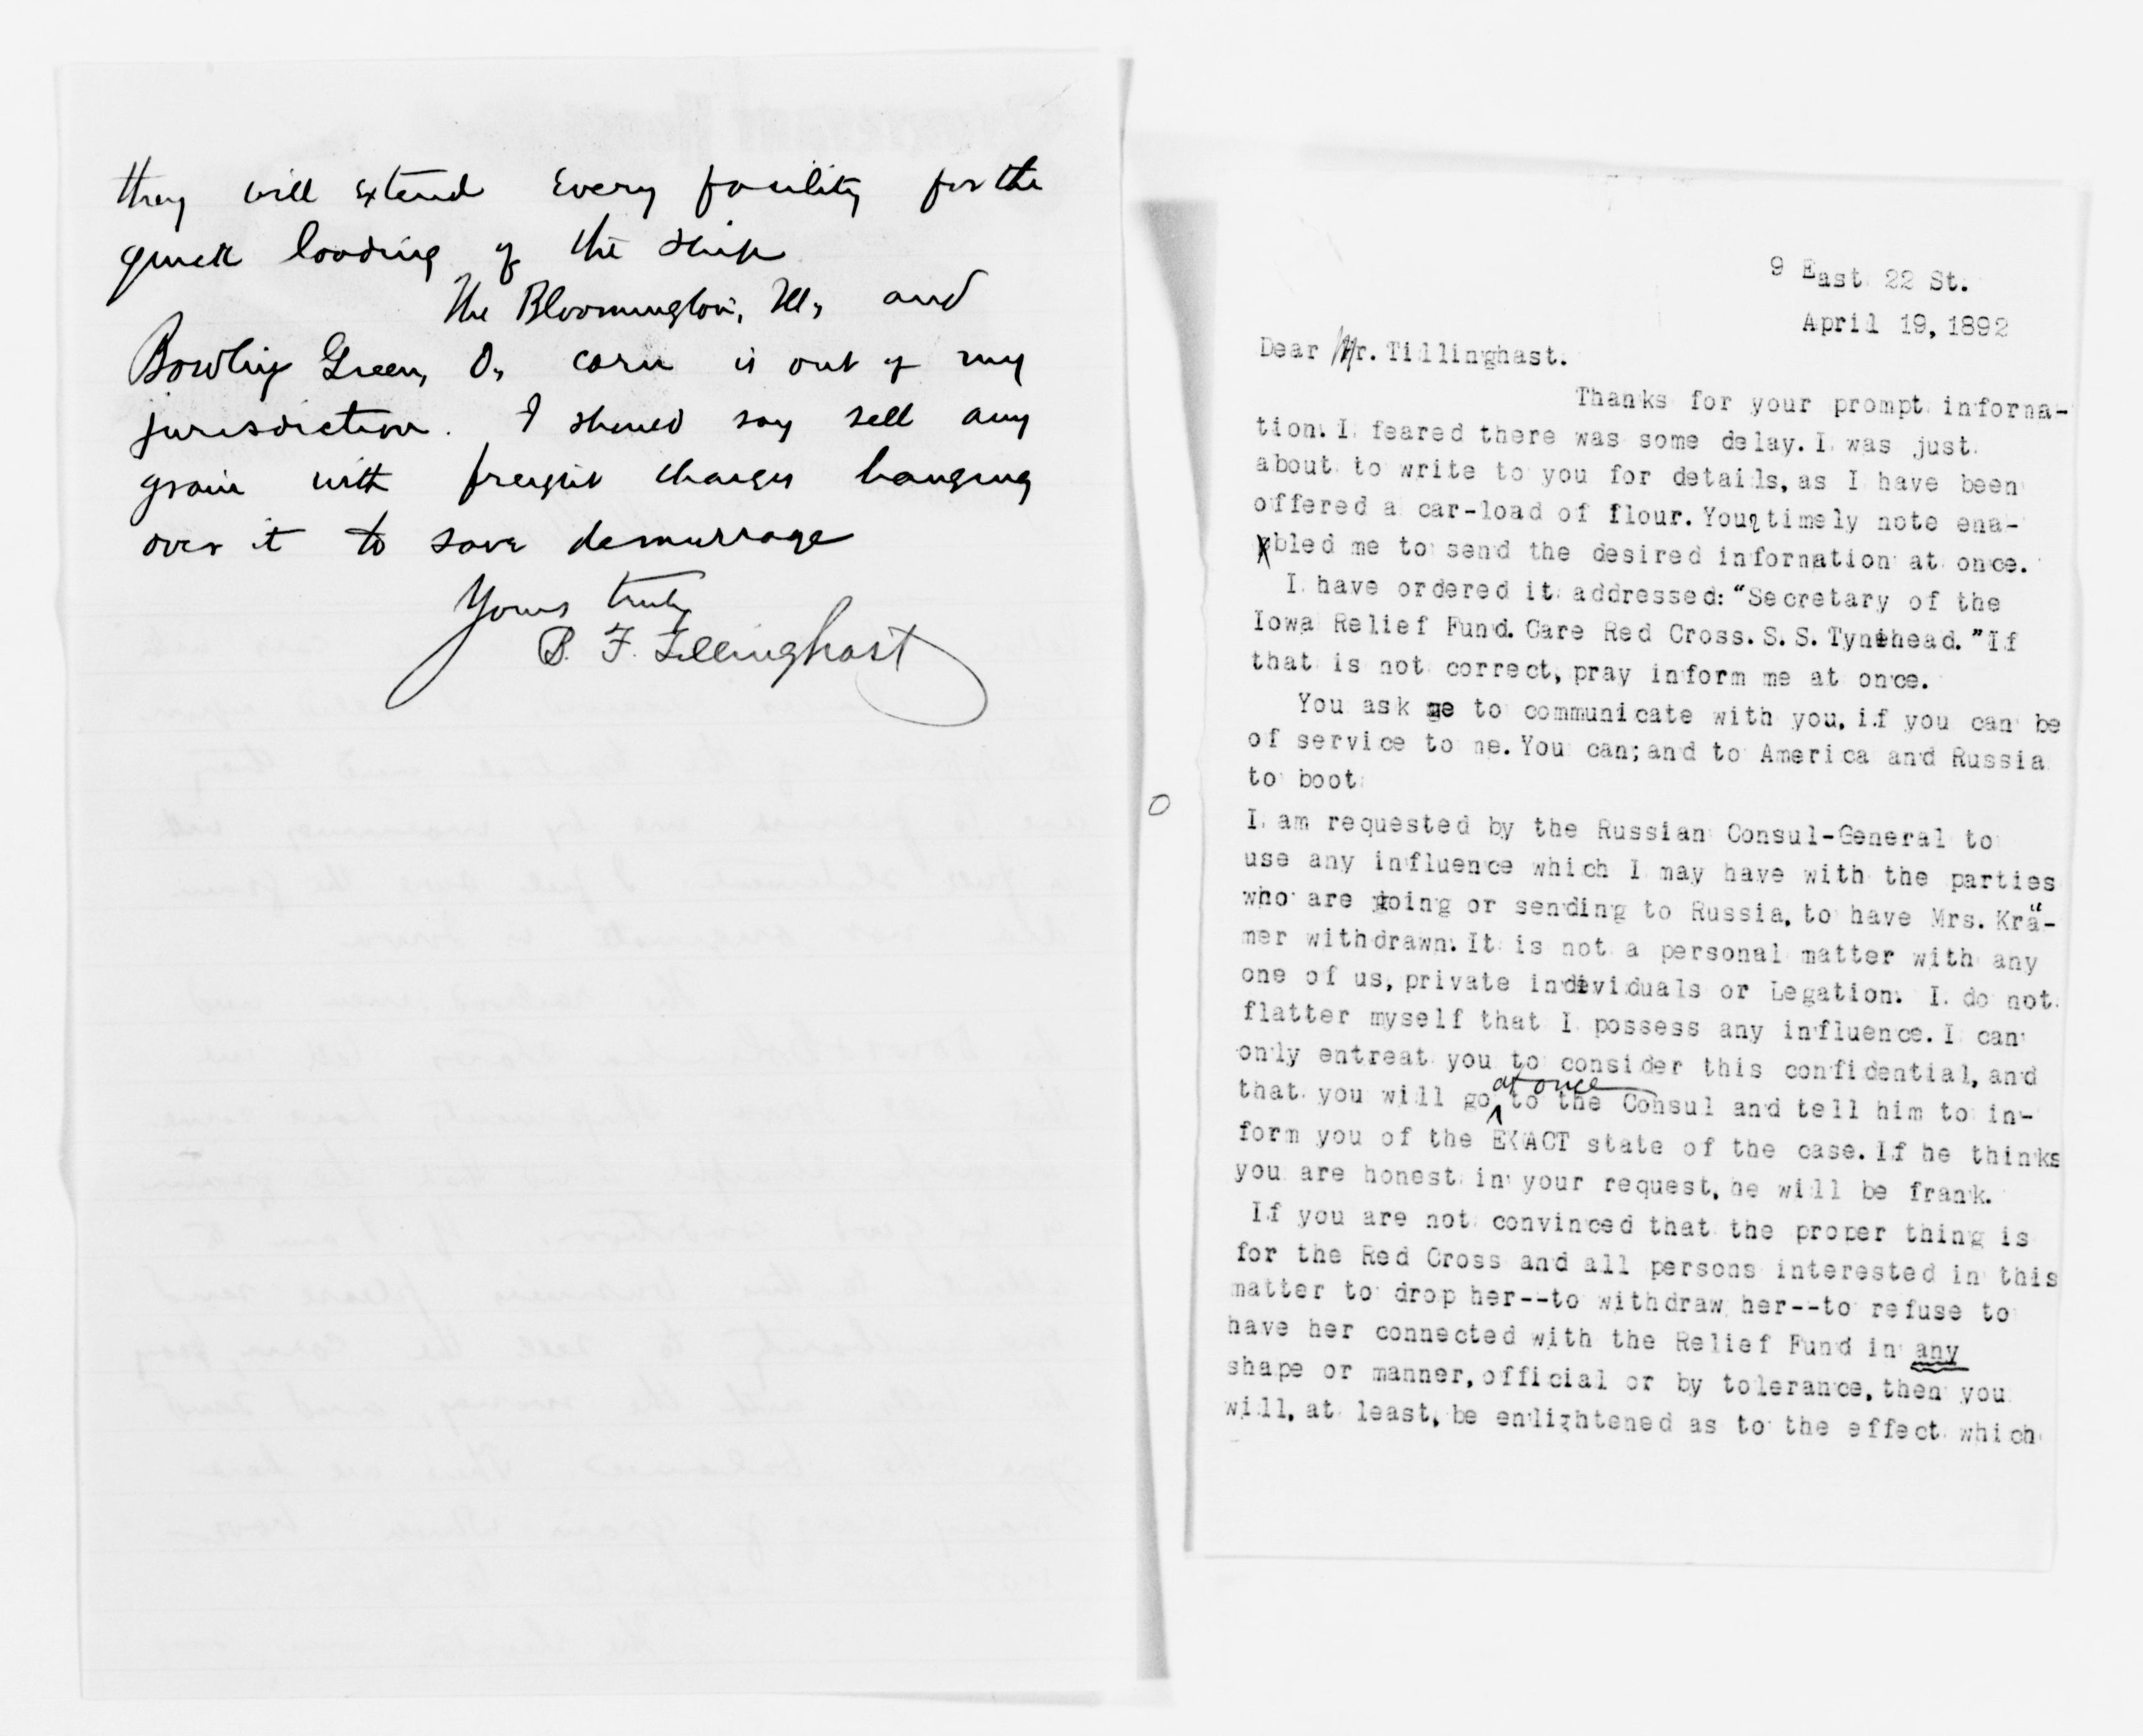 they will extend every facility for the
quick loading of the ship
The Bloomington, Ill, and
Bowling Green, O, corn is out of my
jurisdiction. I should say sell any
grain with freight charges hanging
over it to save demurrage
Yours truly
B. F. Tillinghast
9 East 22 St.
April 19, 1892
Dear Mr. Tillinghast.
Thanks for your prompt inforna-
tion. I feared there was some delay. I was just
about to write to you for details, as I have been
offered a car-load of flour. Your timely note ena-
bled me to send the desired infornation at once.
I have ordered it addressed: "Secretary of the
Iowa Relief Fund. Care Red Cross. S. S. Tynehead." If
that is not correct, pray inform me at once.
You ask me to communicate with you, if you can be
of service to ne. You can; and to America and Russia
to boot.
I am requested by the Russian Consul-General to
use any influence which I may have with the parties
who are going or sending to Russia, to have Mrs. Krä-
mer withdrawn. It is not a personal matter with any
one of us, private individuals or Legation. I do not
flatter myself that I possess any influence. I can
only entreat you to consider this confidential, and
that you will go at once to the Consul and tell him to in-
form you of the EXACT state of the case. If he thinks
you are honest in your request, he will be frank.
If you are not convinced that the proper thing is
for the Red Cross and all persons interested in this
matter to drop her--to withdraw her--to refuse to
have her connected with the Relief Fund in any
shape or manner, official or by tolerance, then you
will, at least, be enlightened as to the effect which